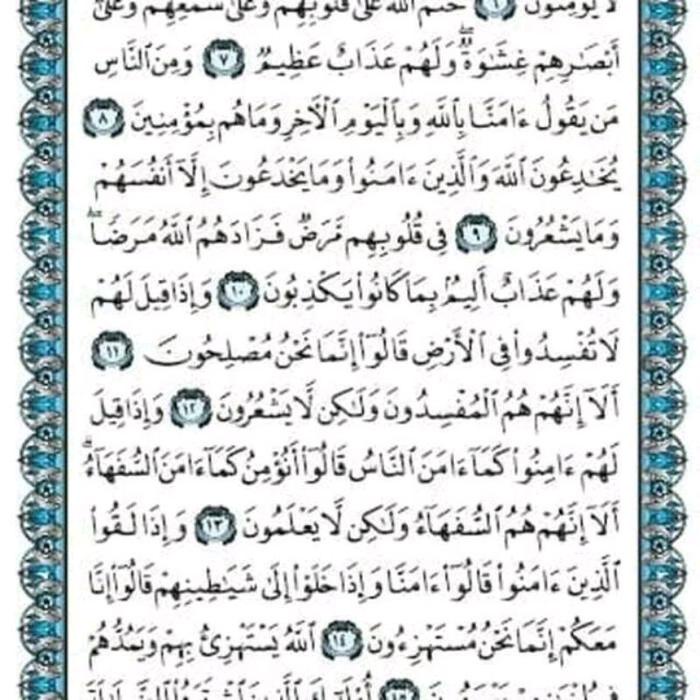 لَا يُؤْمِنُونَ ٦ خَتَمَ ٱللَّهُ عَلَىٰ قُلُوبِهِمْ وَعَلَىٰ سَمْعِهِمْ وَعَلَىٰٓ
أَبْصَـٰرِهِمْ غِشَـٰوَةٌۖ وَلَهُمْ عَذَابٌ عَظِيمٌ ٧ وَمِنَ ٱلنَّاسِ
مَن يَقُولُ ءَامَنَّا بِٱللَّهِ وَبِٱلْيَوْمِ ٱلْـَٔاخِرِ وَمَا هُم بِمُؤْمِنِينَ ٨
يُخَـٰدِعُونَ ٱللَّهَ وَٱلَّذِينَ ءَامَنُوا۟ وَمَا يَخْدَعُونَ إِلَّآ أَنفُسَهُمْ
وَمَا يَشْعُرُونَ ٩ فِى قُلُوبِهِم مَّرَضٌ فَزَادَهُمُ ٱللَّهُ مَرَضًاۖ
وَلَهُمْ عَذَابٌ أَلِيمٌۢ بِمَا كَانُوا۟ يَكْذِبُونَ ١٠ وَإِذَا قِيلَ لَهُمْ
لَا تُفْسِدُوا۟ فِى ٱلْأَرْضِ قَالُوٓا۟ إِنَّمَا نَحْنُ مُصْلِحُونَ ١١
أَلَآ إِنَّهُمْ هُمُ ٱلْمُفْسِدُونَ وَلَـٰكِن لَّا يَشْعُرُونَ ١٢ وَإِذَا قِيلَ
لَهُمْ ءَامِنُوا۟ كَمَآ ءَامَنَ ٱلنَّاسُ قَالُوٓا۟ أَنُؤْمِنُ كَمَآ ءَامَنَ ٱلسُّفَهَآءُۗ
أَلَآ إِنَّهُمْ هُمُ ٱلسُّفَهَآءُ وَلَـٰكِن لَّا يَعْلَمُونَ ١٣ وَإِذَا لَقُوا۟
ٱلَّذِينَ ءَامَنُوا۟ قَالُوٓا۟ ءَامَنَّا وَإِذَا خَلَوْا۟ إِلَىٰ شَيَـٰطِينِهِمْ قَالُوٓا۟ إِنَّا
مَعَكُمْ إِنَّمَا نَحْنُ مُسْتَهْزِءُونَ ١٤ ٱللَّهُ يَسْتَهْزِئُ بِهِمْ وَيَمُدُّهُمْ